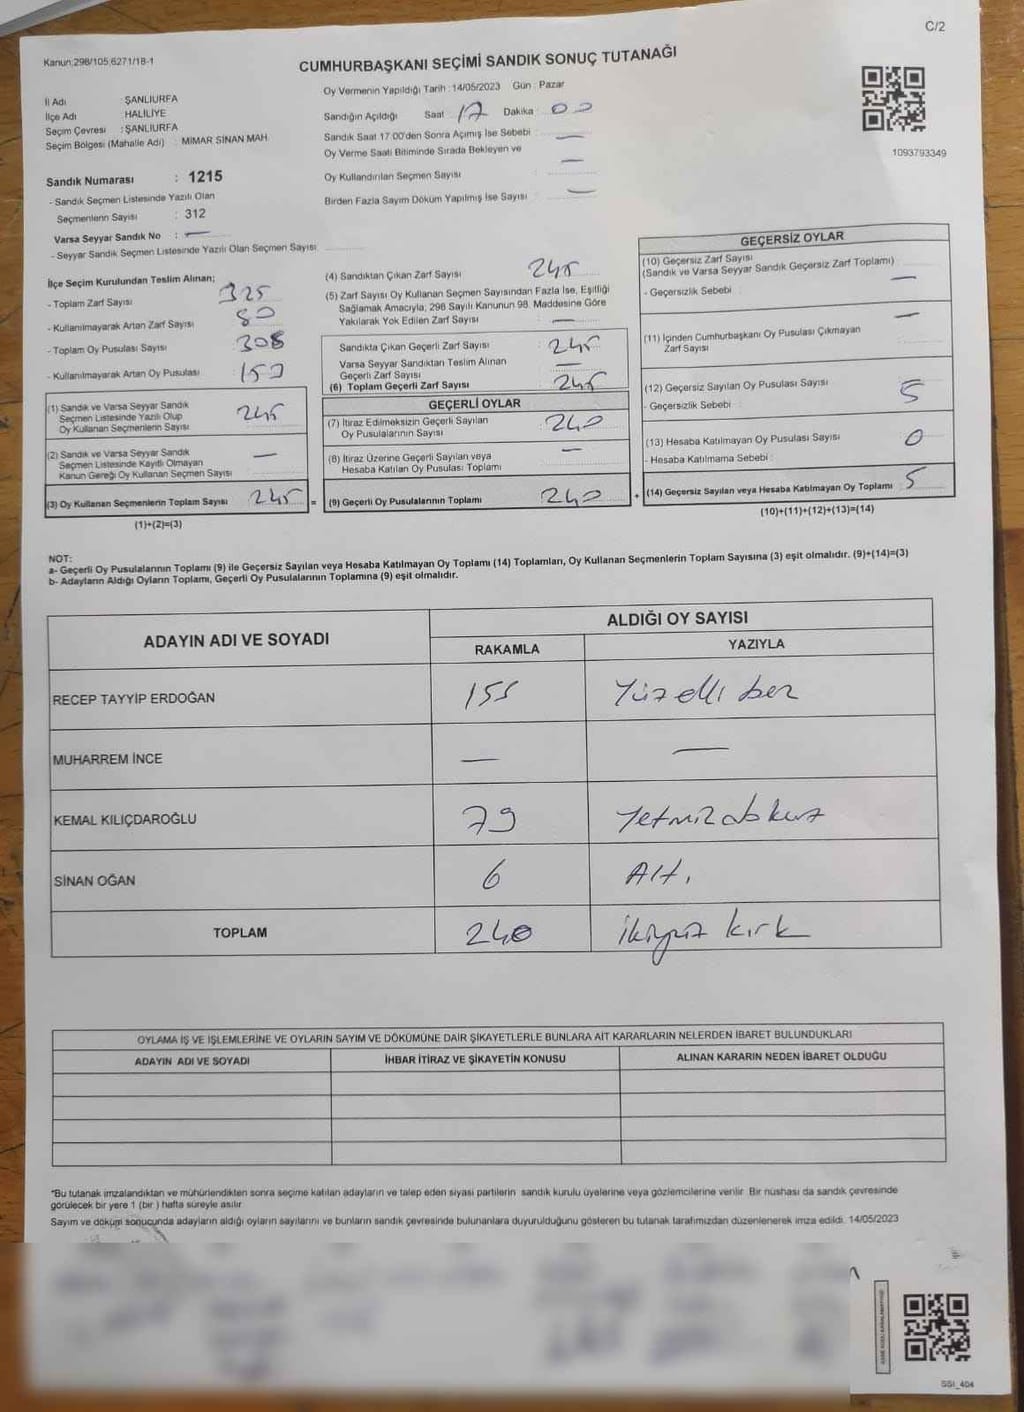 C/2
Kanun:298/105,6271/18-1
CUMHURBAŞKANI SEÇİMİ SANDIK SONUÇ TUTANAĞI
İl Adı ŞANLIURFA
İlçe Adı HALİLİYE
Seçim Çevresi : ŞANLIURFA
Seçim Bölgesi (Mahalle Adı) : MİMAR SİNAN MAH.
Oy Vermenin Yapıldığı Tarih : 14/05/2023 Gün : Pazar
Sandığın Açıldığı Saat : 17 Dakika : 00
Sandık Saat 17.00'den Sonra Açımış İse Sebebi : —
Oy Verme Saati Bitiminde Sırada Bekleyen ve
Oy Kullandırılan Seçmen Sayısı : —
Birden Fazla Sayım Döküm Yapılmış İse Sayısı : —
1093793349
Sandık Numarası : 1215
- Sandık Seçmen Listesinde Yazılı Olan
Seçmenlerin Sayısı : 312
Varsa Seyyar Sandık No : —
- Seyyar Sandık Seçmen Listesinde Yazılı Olan Seçmen Sayısı:
İlçe Seçim Kurulundan Teslim Alınan;
- Toplam Zarf Sayısı 325
- Kullanılmayarak Artan Zarf Sayısı 80
- Toplam Oy Pusulası Sayısı 308
- Kullanılmayarak Artan Oy Pusulası
(1) Sandık ve Varsa Seyyar Sandık
Seçmen Listesinde Yazılı Olup
Oy Kullanan Seçmenlerin Sayısı 245
(2) Sandık ve Varsa Seyyar Sandık
Seçmen Listesinde Kayıtlı Olmayan
Kanun Gereği Oy Kullanan Seçmen Sayısı —
(3) Oy Kullanan Seçmenlerin Toplam Sayısı 245 =
(1)+(2)=(3)
(4) Sandıktan Çıkan Zarf Sayısı 245
(5) Zarf Sayısı Oy Kullanan Seçmen Sayısından Fazla İse, Eşitliği
Sağlamak Amacıyla, 298 Sayılı Kanunun 98. Maddesine Göre
Yakılarak Yok Edilen Zarf Sayısı —
Sandıkta Çıkan Geçerli Zarf Sayısı 245
Varsa Seyyar Sandıktan Teslim Alınan
Geçerli Zarf Sayısı —
(6) Toplam Geçerli Zarf Sayısı 245
GEÇERLİ OYLAR
(7) İtiraz Edilmeksizin Geçerli Sayılan
Oy Pusulalarının Sayısı 240
(8) İtiraz Üzerine Geçerli Sayılan veya
Hesaba Katılan Oy Pusulası Toplamı —
(9) Geçerli Oy Pusulalarının Toplamı 240 +
GEÇERSİZ OYLAR
(10) Geçersiz Zarf Sayısı
(Sandık ve Varsa Seyyar Sandık Geçersiz Zarf Toplamı) :
- Geçersizlik Sebebi : —
(11) İçinden Cumhurbaşkanı Oy Pusulası Çıkmayan —
Zarf Sayısı
(12) Geçersiz Sayılan Oy Pusulası Sayısı 5
- Geçersizlik Sebebi :
(13) Hesaba Katılmayan Oy Pusulası Sayısı 0
- Hesaba Katılmama Sebebi :
(14) Geçersiz Sayılan veya Hesaba Katılmayan Oy Toplamı 5
(10)+(11)+(12)+(13)=(14)
NOT:
a- Geçerli Oy Pusulalarının Toplamı (9) ile Geçersiz Sayılan veya Hesaba Katılmayan Oy Toplamı (14) Toplamları, Oy Kullanan Seçmenlerin Toplam Sayısına (3) eşit olmalıdır. (9)+(14)=(3)
b- Adayların Aldığı Oyların Toplamı, Geçerli Oy Pusulalarının Toplamına (9) eşit olmalıdır.
ADAYIN ADI VE SOYADI ALDIĞI OY SAYISI
RAKAMLA YAZIYLA
RECEP TAYYİP ERDOĞAN 155 Yüzelli beş
MUHARREM İNCE — —
KEMAL KILIÇDAROĞLU 79 Yetmiş dokuz
SİNAN OĞAN 6 Altı
TOPLAM 240 ikiyüz kırk
OYLAMA İŞ VE İŞLEMLERİNE VE OYLARIN SAYIM VE DÖKÜMÜNE DAİR ŞİKAYETLERLE BUNLARA AİT KARARLARIN NELERDEN İBARET BULUNDUKLARI
ADAYIN ADI VE SOYADI İHBAR İTİRAZ VE ŞİKAYETİN KONUSU ALINAN KARARIN NEDEN İBARET OLDUĞU
*Bu tutanak imzalandıktan ve mühürlendikten sonra seçime katılan adayların ve talep eden siyasi partilerin sandık kurulu üyelerine veya gözlemcilerine verilir. Bir nüshası da sandık çevresinde
görülecek bir yere 1 (bir ) hafta süreyle asılır.
Sayım ve döküm sonucunda adayların aldığı oyların sayılarını ve bunların sandık çevresinde bulunanlara duyurulduğunu gösteren bu tutanak tarafımızdan düzenlenerek imza edildi. 14/05/2023
SSI_404